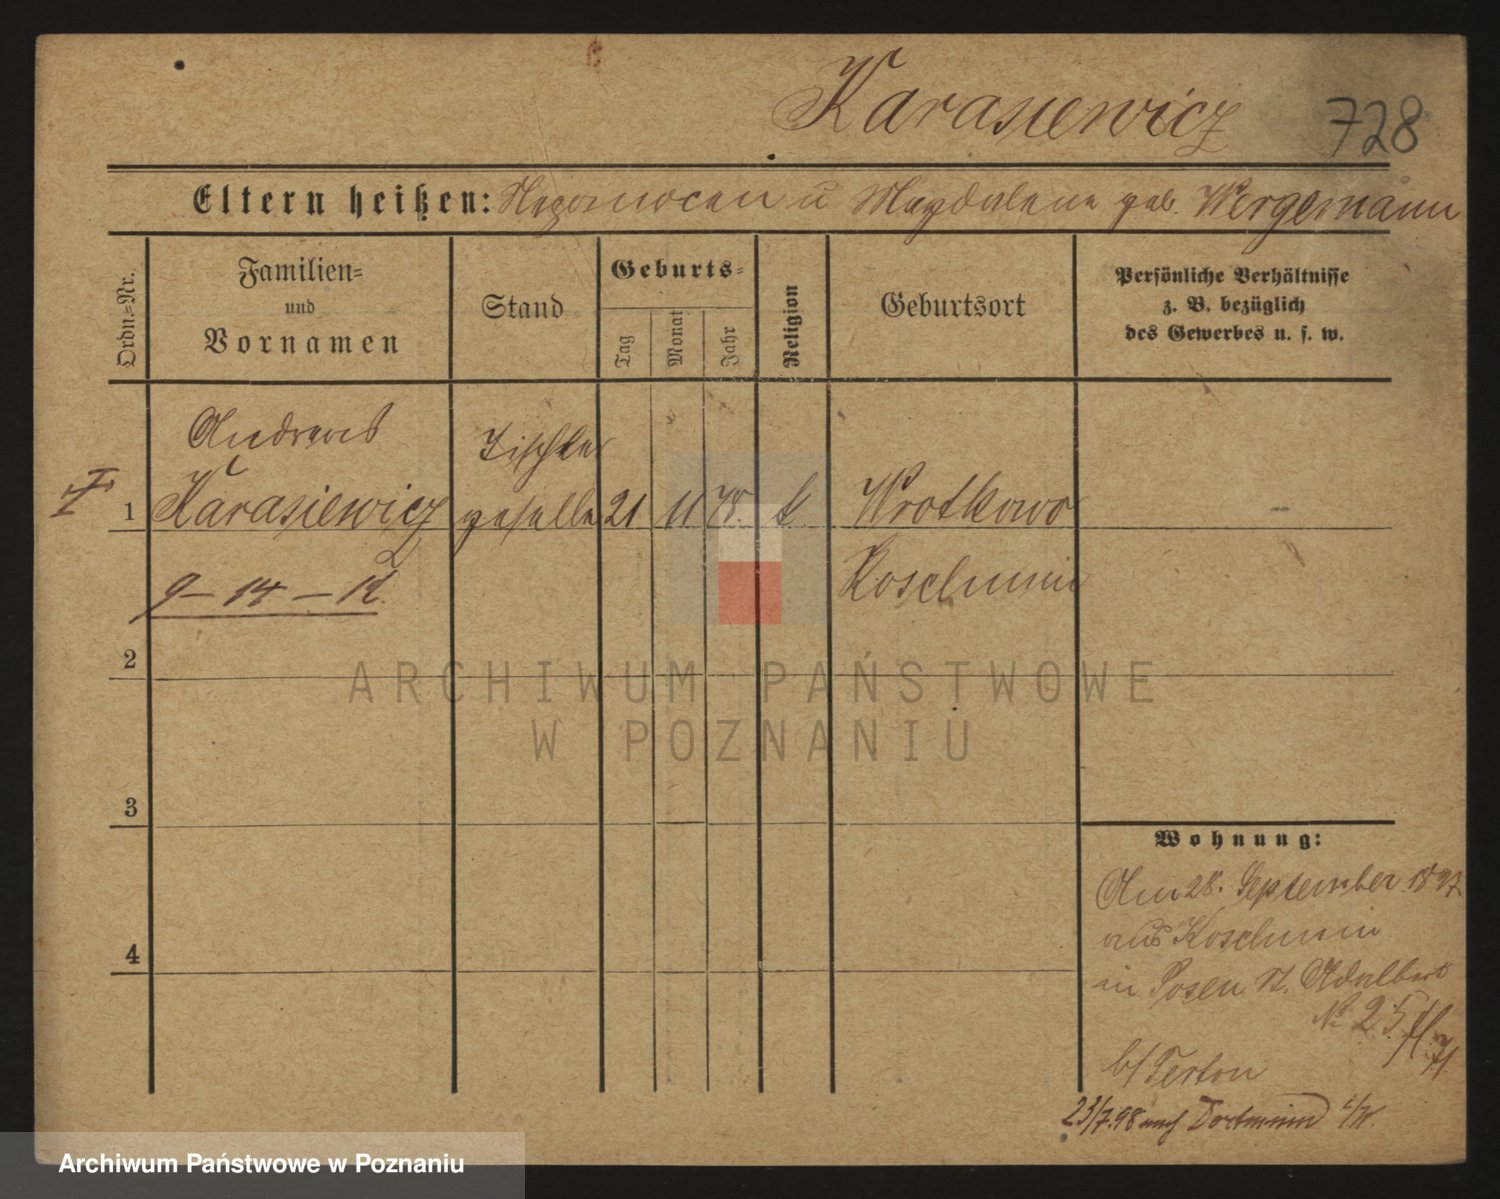 Karasiewicz 728
Eltern heißen: Nepomocen u Magdalena geb. Wergemann
Ordn.=Nr.
Familien=
und
Vornamen
Stand
Geburts=
Tag
Monat
Jahr
Religion
Geburtsort
Persönliche Verhältnisse
z. B. bezüglich
des Gewerbes u. s. w.
Andreas Tischler
1 Karasiewicz geselle 21 11 78. k Wrotkowo
9 – 14 – Koschmin
2
ARCHIWUM PAŃSTWOWE
W POZNANIU
3
Wohnung:
Am 28. September 1897
aus Koschmin
4
in Posen St. Adalbert
No 25
b/ Terton
23/7.98 nach Dortmund
Archiwum Państwowe w Poznaniu